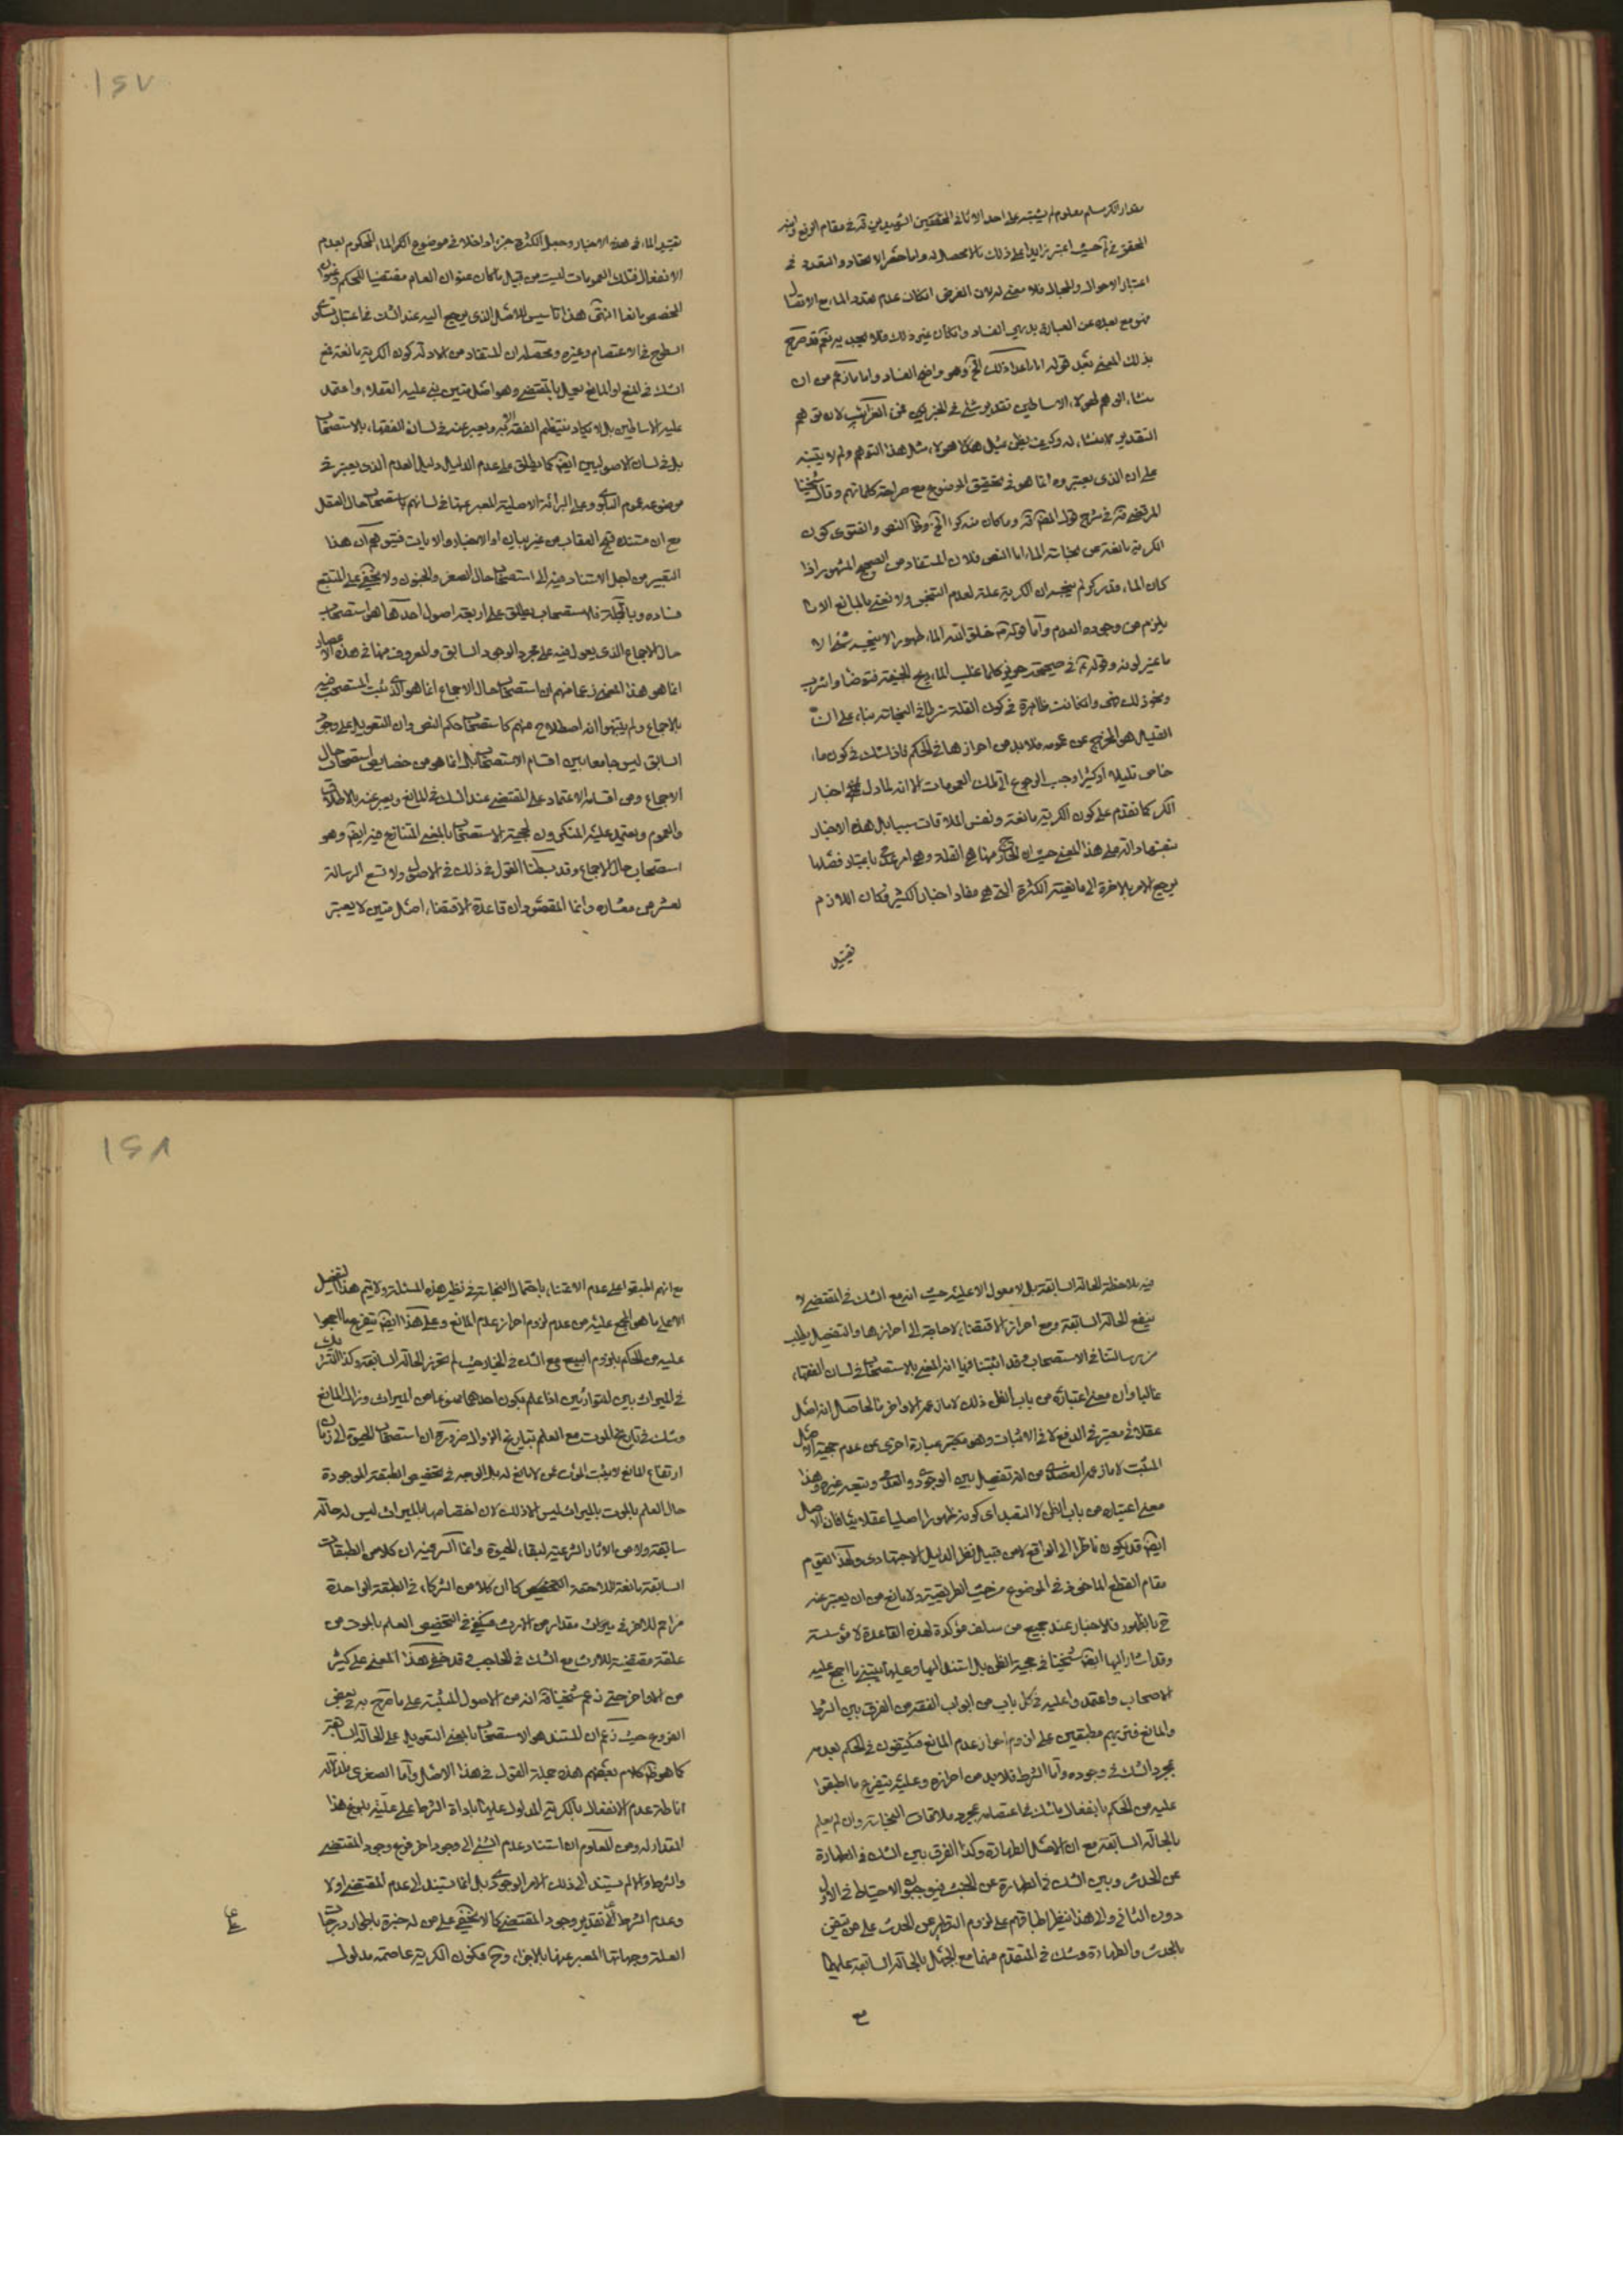 مقدار الكر مسلم معلوم لم يشتبه على احد الا ثانى المحققين الشهيدين قده فى مقام الرفع وليس
المحقق فى حيث اعتبر زايدا على ذلك بالاحصال له واما حصر الاعتقاد والتقدد فى
اعتبار الاحوال والمحال فلا معنى له لان الغرض امكان عدم تعدد الماء مع الاتصال
فهو مع بعده عن العبارة بديهى الفساد وان كان غير ذلك فلا يجديه نعم قد صرح
بذلك المعنى بعد قوله اما ذلك الخ وهو واضح الفساد واما ما زعم من ان
منشاء الوهم لهولاء الاساطين تقدير شئ فى الخبر فهى من الغرائب لان توهم
التقدير لا منشاء له وكيف يظن بمثل هولاء مثل هذا التوهم ولم لا يتنبه
على ان الذى يعتبرونه انما هو فى تحقيق الموضوع مع صراحة كلماتهم وقال شيخنا
المرتضى قده فى شرح قول المصنف قده وما كان منه كرا الخ وظ النص والفتوى كون
الكرية مانعة من نجاسة الماء اما النص فلان المستفاد من الصحيح المشهور اذا
كان الماء قدر كر لم ينجسه ان الكرية علة لعدم التنجس ولا نعنى بالمانع الا ما
يلزم من وجوده العدم واما قوله خلق الله الماء طهورا لا ينجسه شئ الا
ما غير لونه وقوله فى صحيحة حريز كلما غلب الماء ريح الجيفة فتوضأ واشرب
ونحو ذلك فهى وان كانت ظاهرة فى كون القلة شرطا فى النجاسة بناء على ان
القليل هو المخرج عن عمومه فلا بد من احرازها فى الحكم فاذا شك فى كون ماء
خاص قليلا او كثيرا وجب الرجوع الى تلك العمومات الا انه لما دل اخبار
الكر كما تقدم على كون الكرية مانعة ونفس الملاقات سببا بل هذه الاخبار
بنفسها دالة على هذا المعنى حيث ان الخارج منها هى القلة وهى امر عدمى باعتبار فصلها
يرجع الامر بالاخرة الى مانعية الكثرة التى هى مفاد اخبار الكثير فكان اللازم
تقييد
١٤٧
تقييد الماء فى هذه الاخبار وجعل الكثرة جزءا داخلا فى موضوع الكر الماء المحكوم بعدم
الانفعال فتلك العمومات ليست من قبيل ما كان عنوان العام مقتضيا للحكم وعنوان
المخصص مانعا انتهى هذا تاسيس للاصل الذى يرجع اليه عند الشك فى اعتبار تساوى
السطوح فى الاعتصام وغيره ومحصله ان المستفاد من الادلة كون الكرية مانعة فمع
الشك فى المنع او المانع يعمل بالمقتضى وهو اصل متين بنى عليه العقلاء واعتمد
عليه الاساطين بل لا يكاد ينتظم الفقه الا به ويعبر عنه فى لسان الفقهاء بالاستصحاب
بل فى لسان الاصوليين ايضا كما يطلق على عدم الدليل دليل العدم الذى يعتبر فى
موضوعه عموم البلوى وعلى البرائة الاصلية المعبر عنها فى لسانهم باستصحاب حال العقل
مع ان مستنده قبح العقاب من غير بيان او الاخبار والايات فتوهم ان هذا
التعبير من اجل الاستناد فيه الى استصحاب حال الصغر والجنون ولا يخفى على المتتبع
فساده وبالجملة فالاستصحاب يطلق على اربعة اصول احدها هو استصحاب
حال الاجماع الذى يعول فيه على مجرد الوجود السابق والمعروف منها فى هذه الاعصار
انما هو هذا المعنى زعما منهم ان استصحاب حال الاجماع انما هو الذى ثبت المستصحب فيه
بالاجماع ولم يتنبهوا انه اصطلاح منهم كاستصحاب حكم النص وان التعويل على وجود
السابق ليس جامعا بين اقسام الاستصحاب بل انما هو من خصايص استصحاب حال
الاجماع ومن اقسامه الاعتماد على المقتضى عند الشك فى المانع ويعبر عنه بالاطلاق
والعموم ويعتمد عليه المنكرون لحجية الاستصحاب بالمعنى المتنازع فيه ايضا وهو
استصحاب حال الاجماع وقد بسطنا القول فى ذلك فى الاصول ولا تسع الرسالة
لعشر من معشاره وانما المقصود ان قاعدة الاقتضاء اصل متين لا يعتبر
فيه ملاحظة الحالة السابقة بل لا معول الا عليه حيث انه مع الشك فى المقتضى لا
ينفع الحالة السابقة ومع احراز الاقتضاء لا حاجة الى احرازها والتفصيل يطلب
من رسالتنا فى الاستصحاب قد اثبتنا فيها انه المعنى بالاستصحاب فى لسان الفقهاء
غالبا وان معنى اعتباره من باب الظن ذلك لا ما زعمه الاواخر فالحاصل انه اصل
عقلائى معتبر فى الدفع لا فى الاثبات وهو مكتبر عبارة اخرى عن عدم حجية الاصل
المثبت لا ما زعمه العضدى من انه تفصيل بين الوجودى والعدمى وتبعه غيره وهذا
معنى اعتباره من باب الظن لا التعبد اى كونه ظهورا اصليا عقلائيا فان الاصل
ايضا قد يكون ناظرا الى الواقع لا من قبيل نظر الدليل الاجتهادى ولهذا يقوم
مقام القطع الماخوذ فى الموضوع من حيث الطريقية ولا مانع من ان يعبر عنه
ح بالظهور فالاخبار عند جميع من سلف مؤكدة لهذه القاعدة لا مؤسسة
وقد اشار اليها ايضا شيخنا فى حجية الظن بل استند اليها وعليها يبتنى ما اجمع عليه
الاصحاب واعتمدوا عليه فى كل باب من ابواب الفقه من الفرق بين الشرط
والمانع فتريهم مطبقين على لزوم احراز عدم المانع فيكتفون فى الحكم بعدمه
بمجرد الشك فى وجوده واما الشرط فلا بد من احرازه وعليه يتفرع ما اطبقوا
عليه من الحكم بانفعال ما شك فى اعتصامه بمجرد ملاقات النجاسة وان لم يعلم
بالحالة السابقة مع ان الاصل الطهارة وكذا الفرق بين الشك فى الطهارة
عن الحدث وبين الشك فى الطهارة عن الخبث فيوجبون الاحتياط فى الاول
دون الثانى والى هذا ينظر اطباقهم على لزوم التطهر عن الحدث على من تيقن
بالحدث والطهارة وشك فى المتقدم منهما مع الجهل بالحالة السابقة عليهما
مع
١٤٨
مع انهم اطبقوا على عدم الاعتناء باحتمال النجاسة فى نظير هذه المسئلة ولا يتم هذا التفصيل
الا على ما هو المجمع عليه من عدم لزوم احراز عدم المانع وعلى هذا ايضا يتفرع ما اجمعوا
عليه من الحكم بلزوم البيع مع الشك فى الخيار حيث لم تحرز الحالة السابقة وكذا التشريك
فى الميراث بين المتوارثين اذا علم بكون احدهما ممنوعا من الميراث وزال المانع
وشك فى تاريخ الموت مع العلم بتاريخ الزوال ضرورة ان استصحاب الحيوة الى زمان
ارتفاع المانع لا يثبت الموت عن لا مانع له بل الوجه فى تخصيص الطبقة الموجودة
حال العلم بالموت بالميراث ليس الا ذلك لان اختصاصها بالميراث ليس له حالة
سابقة ولا من الاثار الشرعية لبقاء الحيوة وانما السر فيه ان كلا من الطبقات
السابقة مانعة للاحقة كما ان كلا من الشركاء فى الطبقة الواحدة
مزاحم للاخر فى ميراث مقدار من الارث فيكفى فى التخصيص العلم بالموت من
علقة مقتضية للارث مع الشك فى الحاجب وقد خفى هذا المعنى على كثير
من الاواخر حتى زعم شيخنا قده انه من الاصول المثبتة على ما صرح به فى بعض
الفروع حيث زعم ان المستند هو الاستصحاب بالمعنى التعويل على الحالة السابقة
كما هو ظ كلام بعضهم هذه جملة القول فى هذا الاصل واما الصغرى فلدلالة
اناطة عدم الانفعال بالكرية المدلول عليها باداة الشرط على علية بلوغ هذا
المقدار له ومن المعلوم ان استناد عدم الشئ الى وجود اخر فرع وجود المقتضى
والشرط والا لم يستند الى ذلك الامر الوجودى بل انما يستند الى عدم المقتضى اولا
وعدم الشرط على تقدير وجود المقتضى كما لا يخفى على من له خبرة باطوار درجات
العلة وجهاتها المعبر عنها بالاجزاء وح فكون الكرية عاصمة مدلول